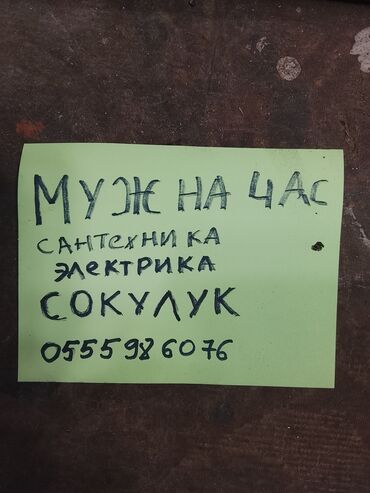 МУЖ НА ЧАС
САНТЕХНИКА
ЭЛЕКТРИКА
СОКУЛУК
0555986076